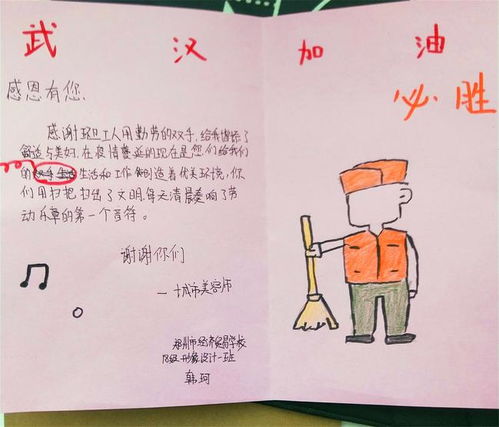 武汉加油
必胜
感恩有您,
感谢环卫工人用勤劳的双手,给我们带来了
舒适与美好.在疫情蔓延的现在是您们给我们
的生活和工作创造着优美环境,你
们用扫把扫出了文明.每天清晨奏响了劳
动乐章的第一个音符。
谢谢你们
—城市美容师
郑州市经济贸易学校
18级形象设计一班
韩珂